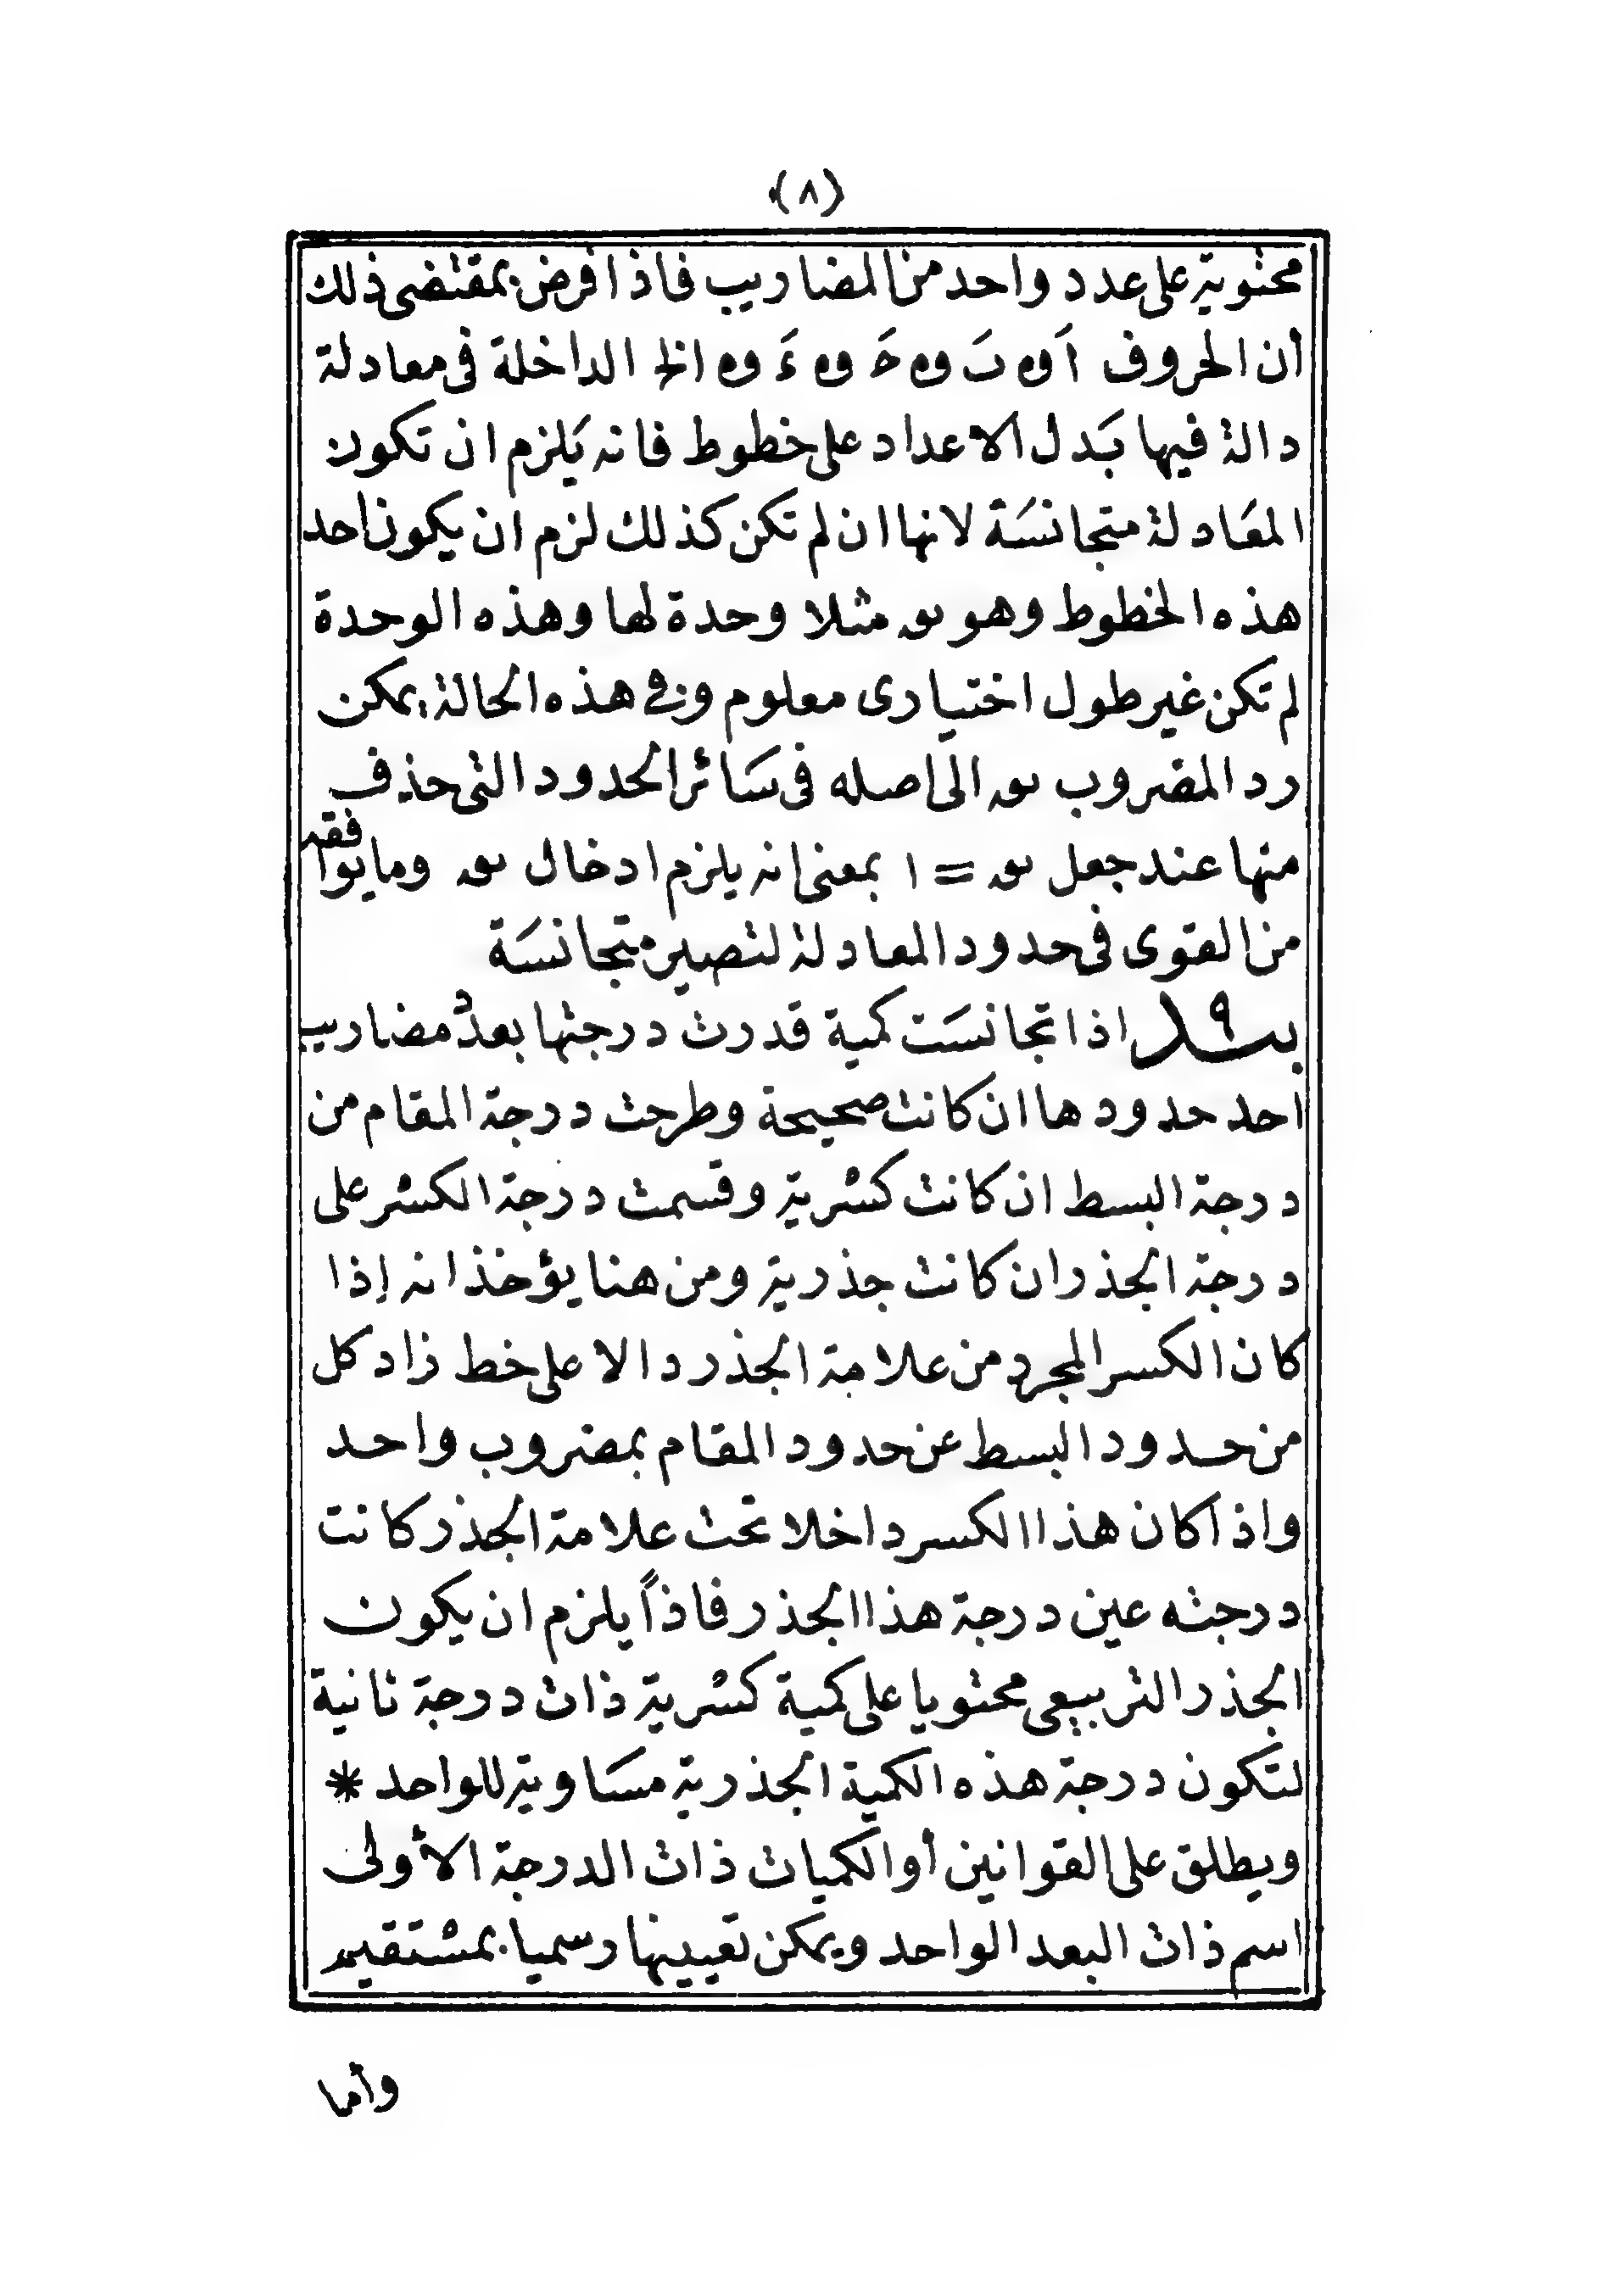 (٨)
محتوية على عدد واحد من المضاريب فاذا فرض بمقتضى ذلك
أن الحروف اَ و بَ و حَ و ءَ و الخ الداخلة فى معادلة
دالة فيها بَدل الاعداد على خطوط فانه يَلزم ان تكون
المعَادلة متجانسَة لانها ان لم تكن كذلك لزم ان يكون احد
هذه الخطوط وهو مثلا وحدة لها وهذه الوحدة
لم تكن غير طول اختيارى معلوم وفى هذه الحالة يمكن
رد المضروب الى اصله فى سَائر الحدود التى حذف
منها عند جعل = ١ بمعنى انه يلزم ادخال وما يوافقه
من القوى فى حدود المعادلة لتصير متجانسَة
٩ اذا تجانسَت كمية قدرت درجتها بعدد مضاريب
احد حدودها ان كانت صحيحة وطرحت درجة المقام من
درجة البسط ان كانت كسْرية وقسمت درجة الكسْر على
درجة الجذر ان كانت جذرية ومن هنا يؤخذ انه إذا
كان الكسر المجرد من علامة الجذر دالا على خط زاد كل
من حدود البسط عن حدود المقام بمضروب واحد
واذا كان هذا الكسر داخلا تحت علامة الجذر كانت
درجته عين درجة هذا الجذر فاذاً يلزم ان يكون
الجذر التربيعى محتويا على كمية كسْرية ذات درجة ثانية
لتكون درجة هذه الكمية الجذرية مسَاوية للواحد *
ويطلق على القوانين أو الكميات ذات الدرجة الأولى
اسم ذات البعد الواحد ويمكن تعيينها رسميا بمسْتقيم
وأما